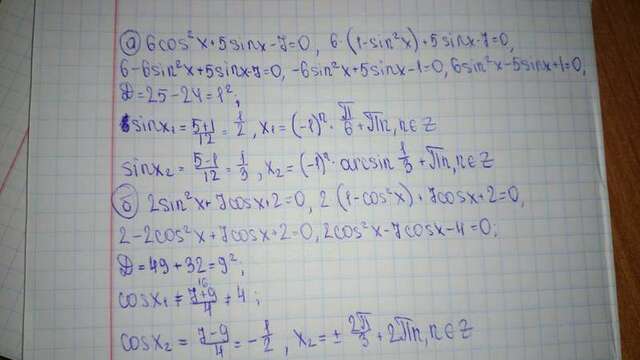 а) 6cos²x+5sinx-7=0, 6·(1-sin²x)+5sinx-7=0,
6-6sin²x+5sinx-7=0, -6sin²x+5sinx-1=0, 6sin²x-5sinx+1=0,
D=25-24=1²;
sinx₁=(5+1)/12=1/2, x₁=(-1)ⁿ·π/6+πn, n∈Z
sinx₂=(5-1)/12=1/3, x₂=(-1)ⁿ·arcsin 1/3+πn, n∈Z
б) 2sin²x+7cosx+2=0, 2(1-cos²x)+7cosx+2=0,
2-2cos²x+7cosx+2=0, 2cos²x-7cosx-4=0;
D=49+32=9²;
cosx₁≠(7+9)/4≠4;
cosx₂=(7-9)/4=-1/2, x₂=±2π/3+2πn, n∈Z